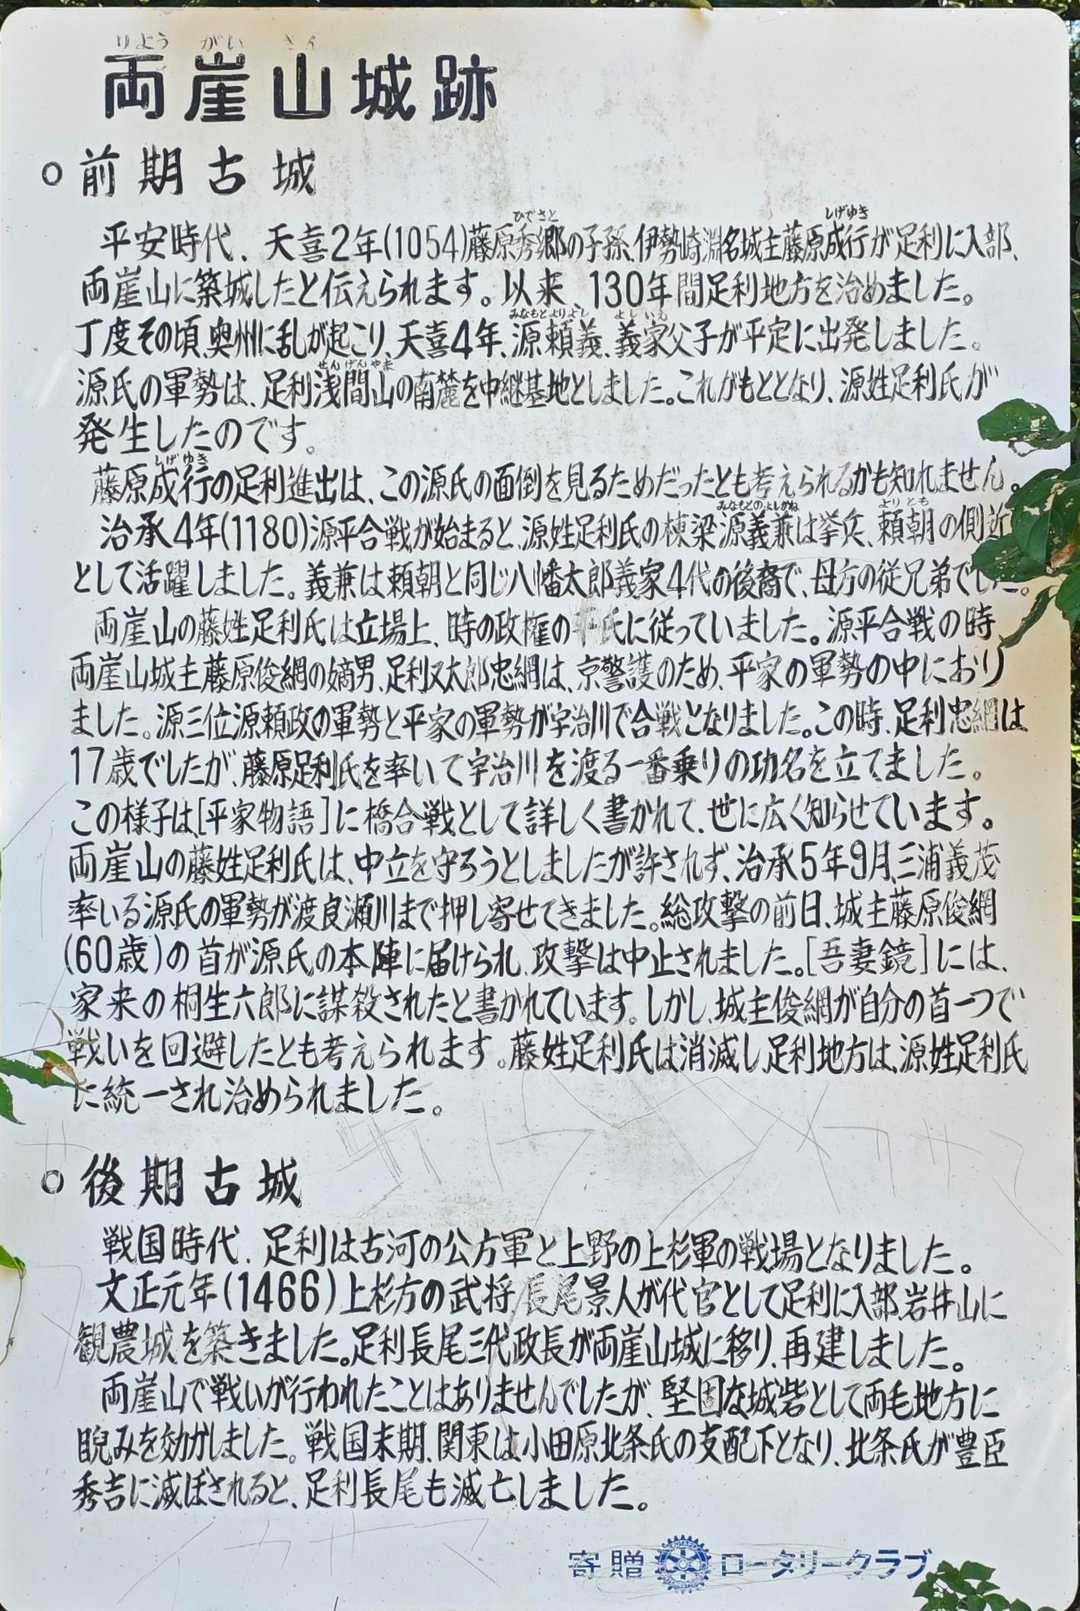 りょう がい さん
両崖山城跡
○前期古城
平安時代、天喜2年(1054)藤原秀郷の子孫、伊勢崎淵名城主藤原成行が足利に入部、
ひでさと しげゆき
両崖山に築城したと伝えられます。以来、130年間足利地方を治めました。
丁度その頃、奥州に乱が起こり、天喜4年、源頼義、義家父子が平定に出発しました。
みなもとよりよし よしいえ
源氏の軍勢は、足利浅間山の南麓を中継基地としました。これがもととなり、源姓足利氏が
せんげんやま
発生したのです。
藤原成行の足利進出は、この源氏の面倒を見るためだったとも考えられるかも知れません。
しげゆき
治承4年(1180)源平合戦が始まると、源姓足利氏の棟梁源義兼は挙兵、頼朝の側近
みなもとのよしかね よりとも
として活躍しました。義兼は頼朝と同じ八幡太郎義家4代の後裔で、母方の従兄弟でした。
両崖山の藤姓足利氏は立場上、時の政権の平氏に従っていました。源平合戦の時
両崖山城主藤原俊綱の嫡男、足利又太郎忠綱は、京警護のため、平家の軍勢の中におり
ました。源三位源頼政の軍勢と平家の軍勢が宇治川で合戦となりました。この時、足利忠綱は
17歳でしたが、藤原足利氏を率いて宇治川を渡る一番乗りの功名を立てました。
この様子は[平家物語]に橋合戦として詳しく書かれて、世に広く知らせています。
両崖山の藤姓足利氏は、中立を守ろうとしましたが許されず、治承5年9月、三浦義茂
率いる源氏の軍勢が渡良瀬川まで押し寄せてきました。総攻撃の前日、城主藤原俊綱
(60歳)の首が源氏の本陣に届けられ、攻撃は中止されました。[吾妻鏡]には、
家来の桐生六郎に謀殺されたと書かれています。しかし、城主俊綱が自分の首一つで
戦いを回避したとも考えられます。藤姓足利氏は消滅し足利地方は、源姓足利氏
に統一され治められました。
○後期古城
戦国時代、足利は古河の公方軍と上野の上杉軍の戦場となりました。
文正元年(1466)上杉方の武将、長尾景人が代官として足利に入部、岩井山に
観農城を築きました。足利長尾三代政長が両崖山城に移り、再建しました。
両崖山で戦いが行われたことはありませんでしたが、堅固な城砦として両毛地方に
睨みを効かしました。戦国末期、関東は小田原北条氏の支配下となり、北条氏が豊臣
秀吉に滅ぼされると、足利長尾も滅亡しました。
寄贈 ロータリークラブ